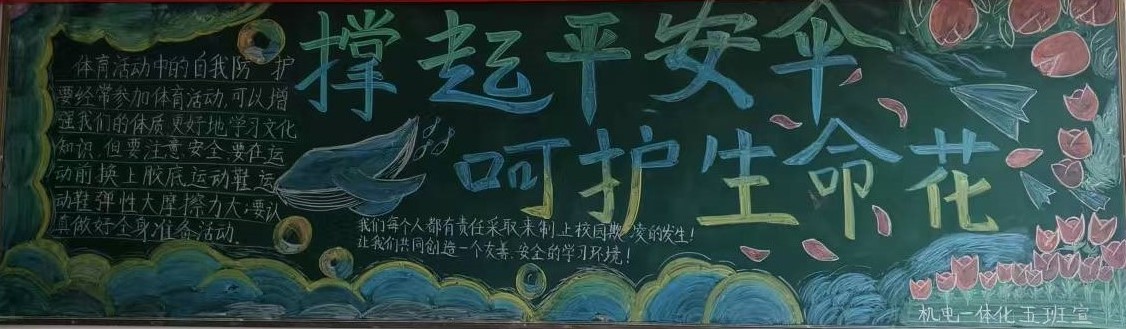 撑起平安伞
呵护生命花
体育活动中的自我防 护
要经常参加体育活动,可以增
强我们的体质更好地学习文化
知识.但要注意安全.要在运
动前换上胶底运动鞋,运
动鞋弹性大摩擦力大,要认
真做好全身准备活动.
我们每个人都有责任采取来制止校园欺凌的发生!
让我们共同创造一个友善.安全的学习环境!
机电一体化五班宣